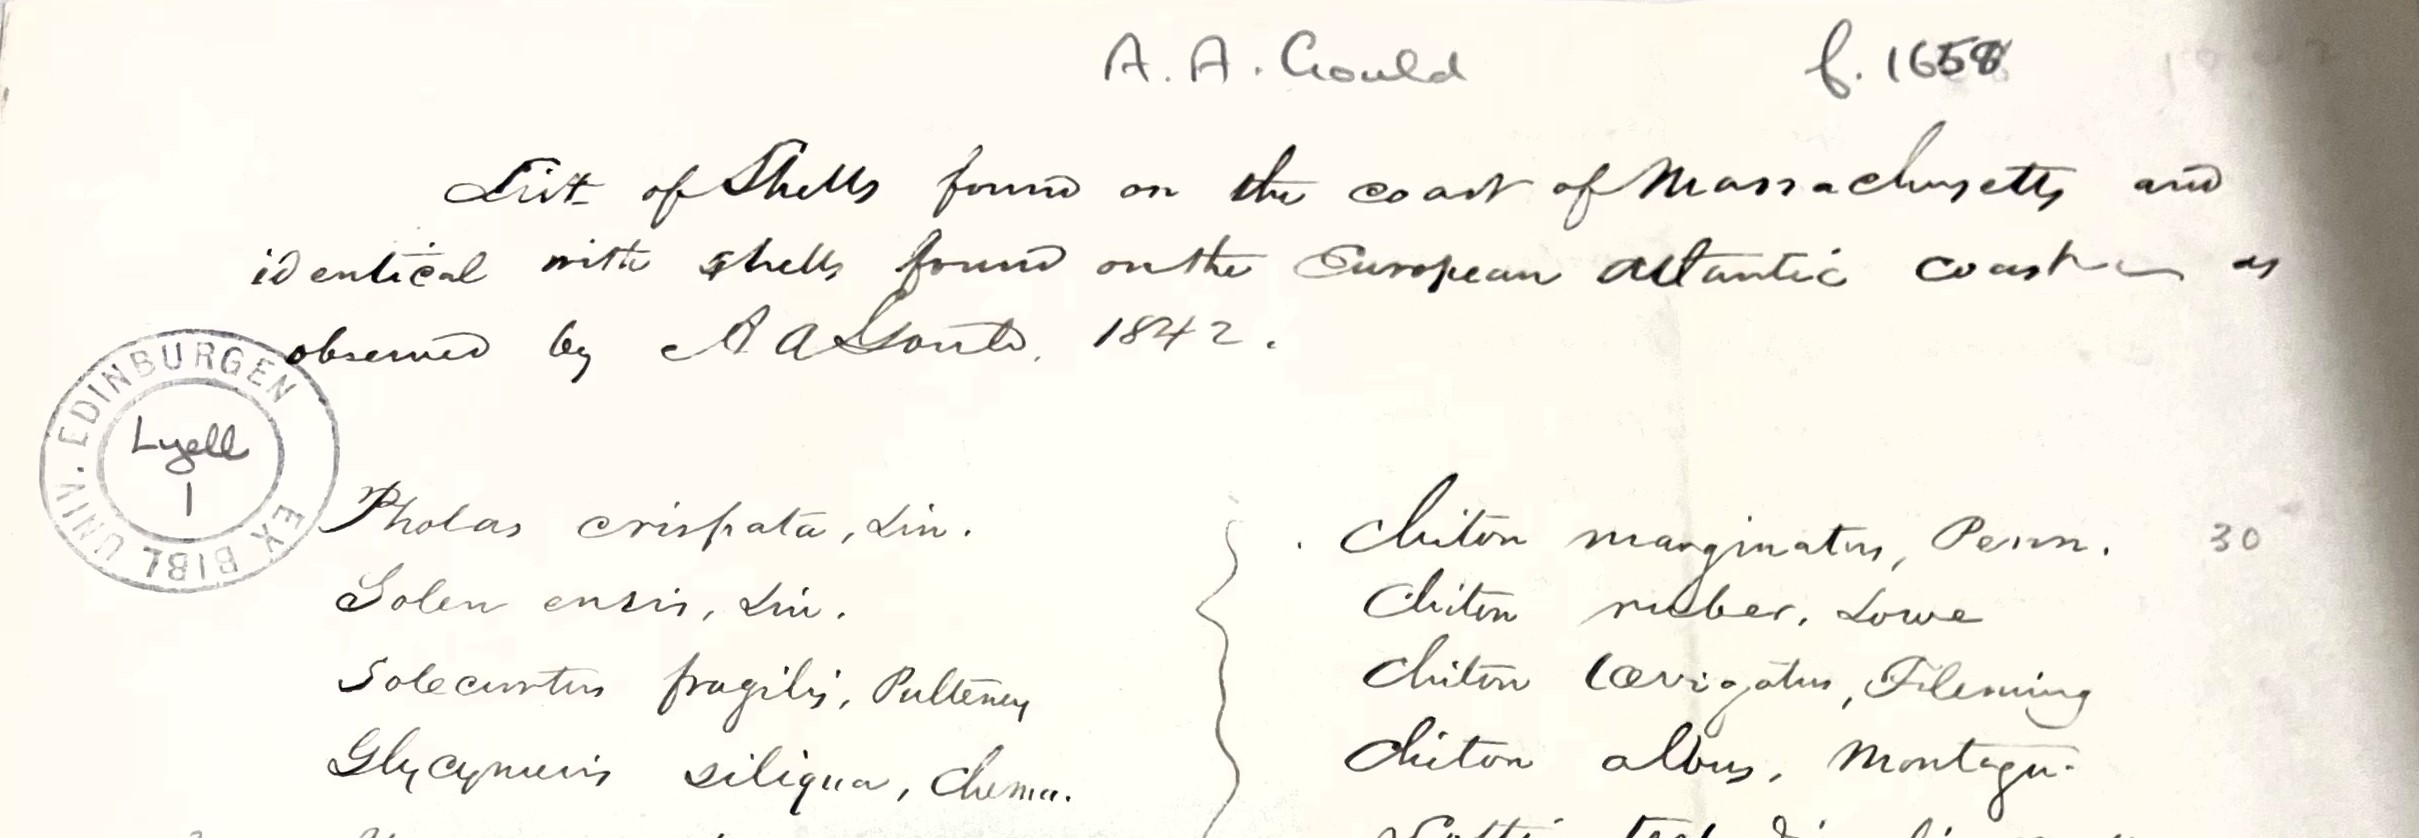 A. A. Gould f. 1658
List of Shells found on the coast of Massachusetts and
identical with shells found on the European Atlantic coast as
observed by A A Gould. 1842.
EX BIBL UNIV. EDINBURGEN
Lyell
1
Pholas crispata, Lin.
Solen ensis, Lin.
Solecurtus fragilis, Pulteney
Glycymeris siliqua, Chemn.
Chiton marginatus, Penn. 30
Chiton ruber, Lowe
Chiton lævigatus, Fleming
Chiton albus, Montagu.